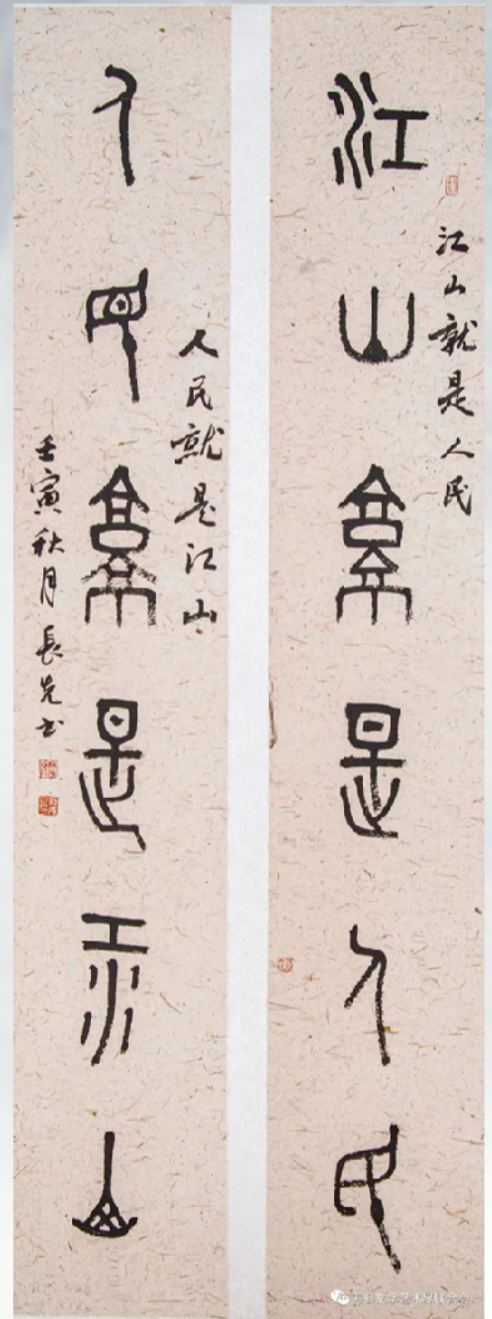 江山就是人民
江山就是人民
人民就是江山
人民就是江山
壬寅秋月長先书